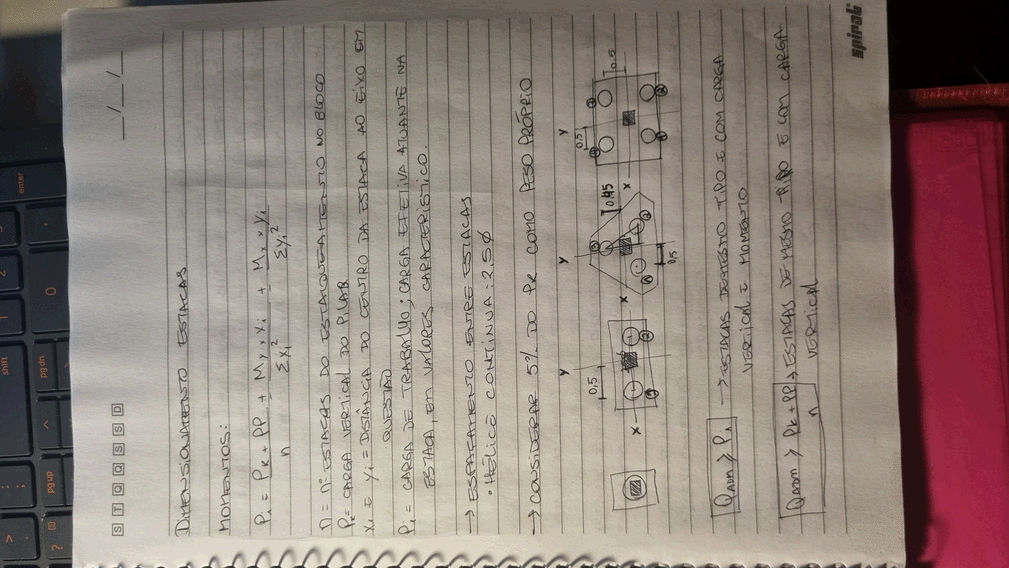 S T Q Q S S D
__/__/__
DIMENSIONAMENTO ESTACAS
MOMENTOS:
Pi = PK + PP / n ± My x xi / Σxi² ± Mx x yi / Σyi²
n = nº ESTACAS DO ESTAQUEAMENTO NO BLOCO
PK = CARGA VERTICAL DO PILAR
xi E yi = DISTÂNCIA DO CENTRO DA ESTACA AO EIXO EM
QUESTÃO
Pi = CARGA DE TRABALHO; CARGA EFETIVA ATUANTE NA
ESTACA, EM VALORES CARACTERÍSTICO.
→ ESPAÇAMENTO ENTRE ESTACAS
• HÉLICE CONTÍNUA: 2,5 Ø
→ CONSIDERAR 5% DO PK COMO PESO PRÓPRIO
y y y
0,5 0.45 0.5 0.5
x x x
① ② ① ② ③ ① ② ③ ④
0.5
QADM ≥ Pi → ESTACAS DE MESMO TIPO E COM CARGA
VERTICAL E MOMENTO
QADM ≥ PK + PP / n → ESTACAS DE MESMO TIPO E COM CARGA
VERTICAL
spiral
enter
shift
pg dn
pg up
0
?
>
^